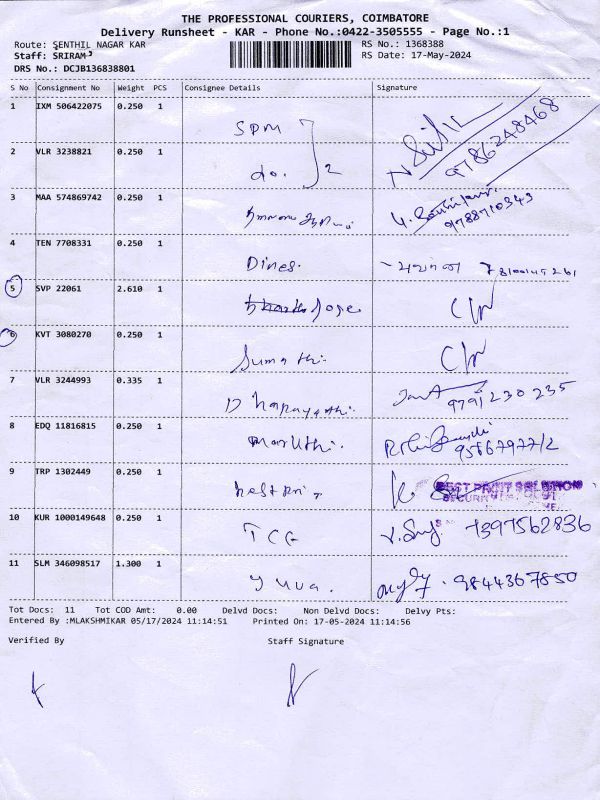 THE PROFESSIONAL COURIERS, COIMBATORE
Delivery Runsheet - KAR - Phone No.:0422-3505555 - Page No.:1
Route: SENTHIL NAGAR KAR RS No.: 1368388
Staff: SRIRAM RS Date: 17-May-2024
DRS No.: DCJB136838801
S No Consignment No Weight PCS Consignee Details Signature
1 IXM 506422075 0.250 1 SDM
9786248468
2 VLR 3238821 0.250 1 do. 2
3 MAA 574869742 0.250 1
9788710343
4 TEN 7708331 0.250 1 Dines.
5 SVP 22061 2.610 1 Jose
6 KVT 3080270 0.250 1 Sumathi.
7 VLR 3244993 0.335 1 Dhanayathi. 9791230235
8 EDQ 11816815 0.250 1 Maruthi.
9 TRP 1302449 0.250 1 BEST PRINT SOLUTION
10 KUR 1000149648 0.250 1 TCG 7397562836
11 SLM 346098517 1.300 1 Yuva. 9844367850
Tot Docs: 11 Tot COD Amt: 0.00 Delvd Docs: Non Delvd Docs: Delvy Pts:
Entered By :MLAKSHMIKAR 05/17/2024 11:14:51 Printed On: 17-05-2024 11:14:56
Verified By Staff Signature